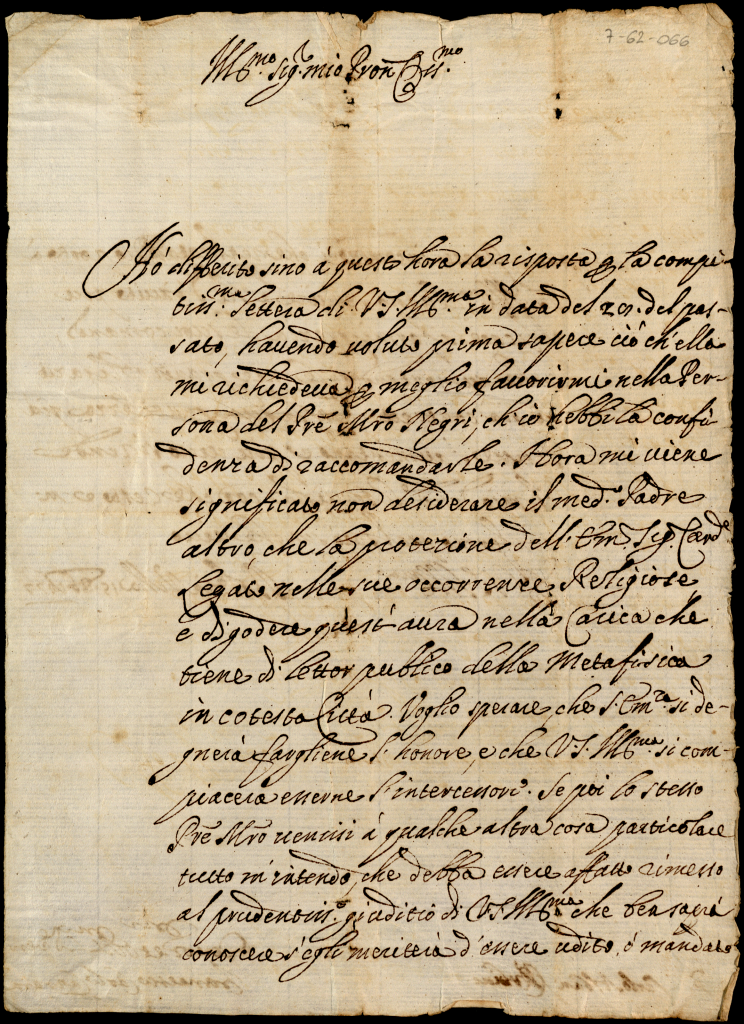 7-62-066
Ill.mo Sig.r mio Pron Oss.mo
Hò differito sino à quest'hora la risposta p la compi-
tiss.ma lettera di V.S. Ill.ma in data del 29. del pas-
sato, havendo voluto prima sapere ciò ch'ella
mi richiedeva p meglio favorirmi nella Per-
sona del Prẽ Mrõ Negri, ch'io hebbi la confi
denza di raccomandarle. Hora mi viene
significato non desiderare il med.o Padre
altro, che la protezione dell'Em. Sig. Card.e
Legato nelle sue occorrenze Religiose,
e di godere quest'aura nella Carica che
tiene di lettor publico della Metafisica
in cotesta Città. Voglio sperare, che S. Em.za si de-
gnerà fargliene l'honore, e che V.S. Ill.ma si com-
piacerà esserne l'intercessore. Se poi lo stesso
Prẽ Mrõ venissi à qualche altra cosa particolare
tutto m'intendo, che debba essere affatto rimesso
al prudentiss.o giuditio di V.S. Ill.ma che ben saprà
conoscere s'egli meriterà d'essere udito, ó mandato